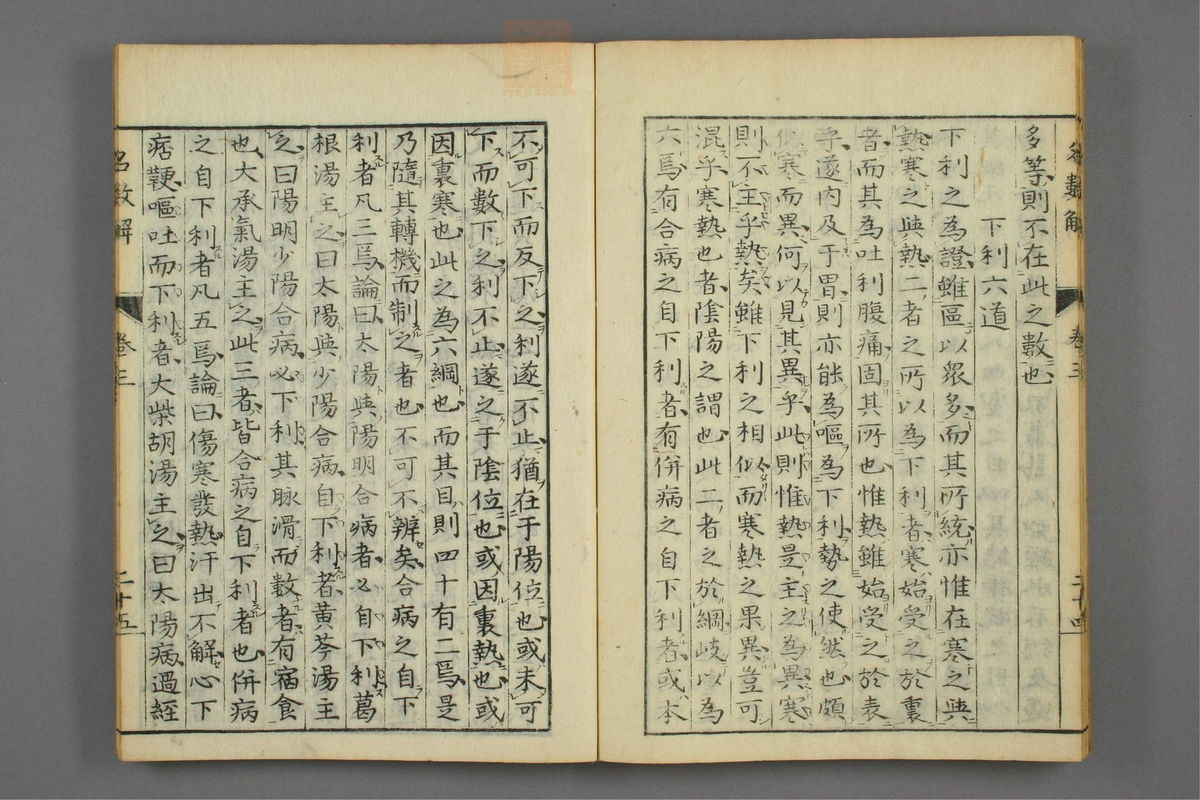 名數解 卷三 二十四
多等則不在此之數也
下利六道
下利之為證雖區以衆多而其所統亦惟在寒之與
熱寒之與熱二者之所以為下利者寒始受之於裏
者而其為吐利腹痛固其所也惟熱雖始受之於表
乎遂内及于胃則亦能為嘔為下利勢之使然也頗
似寒而異何以見其異乎此則惟熱是主之為異寒
則不主乎熱矣雖下利之相似而寒熱之果異豈可
混乎寒熱也者陰陽之謂也此二者之於綱岐以為
六爲有合病之自下利者有併病之自下利者或本
不可下而反下之利遂不止猶在于陽位也或未可
下而數下之利不止遂之于陰位也或因裏熱也或
因裏寒也此之為六綱也而其目則四十有二焉是
乃隨其轉機而制之者也不可不辨矣合病之自下
利者凡三焉論曰太陽與陽明合病者必自下利葛
根湯主之曰太陽與少陽合病自下利者黄芩湯主
之曰陽明少陽合病必下利其脉滑而數者有宿食
也大承氣湯主之此三者皆合病之自下利者也併病
之自下利者凡五焉論曰傷寒發熱汗出不解心下
痞鞕嘔吐而下利者大柴胡湯主之曰太陽病過經
名數解 卷三 二十五